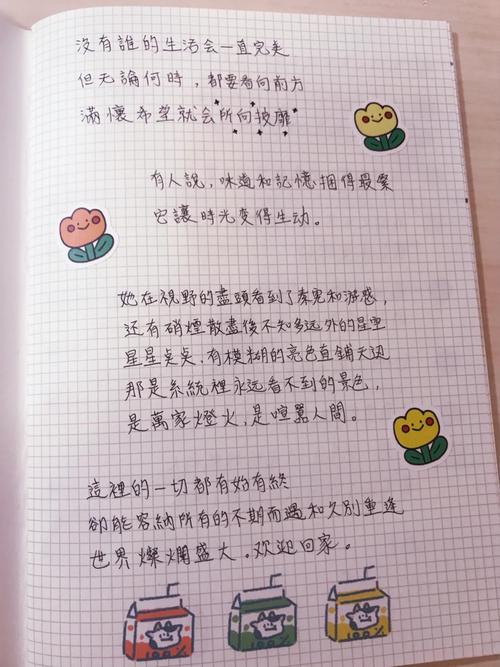 沒有誰的生活会一直完美
但无論何時，都要看向前方
滿懷希望就会所向披靡
有人說，味道和記憶捆得最緊
它讓時光变得生动。
她在視野的盡頭看到了秦究和游惑，
还有硝煙散盡後不知多远外的星空
星星点点，有模糊的亮色直鋪天边
那是系統裡永远看不到的景色，
是萬家燈火，是喧囂人間。
這裡的一切都有始有終
卻能容納所有的不期而遇和久別重逢
世界燦爛盛大，欢迎回家。